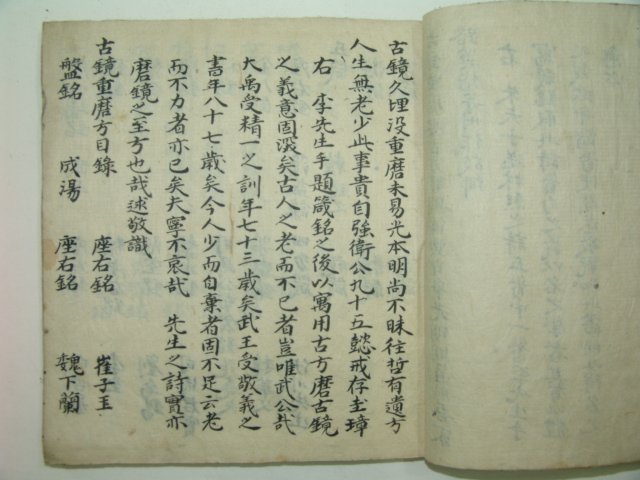 古鏡久埋没重磨未易光本明尚不昧往哲有遺方
人生無老少此事貴自強衛公九十五懿戒存圭璋
右 李先生手題箴銘之後以寓用古方磨古鏡
之義意固深矣古人之老而不已者豈唯武公哉
大禹受精一之訓年七十三歲矣武王受敬義之
書年八十七歲矣今人少而自棄者固不足云老
而不力者亦已矣夫寧不哀哉 先生之詩實亦
磨鏡之至方也哉述敬識
古鏡重磨方目錄 座右銘 崔子玉
盤銘 成湯 座右銘 魏下蘭